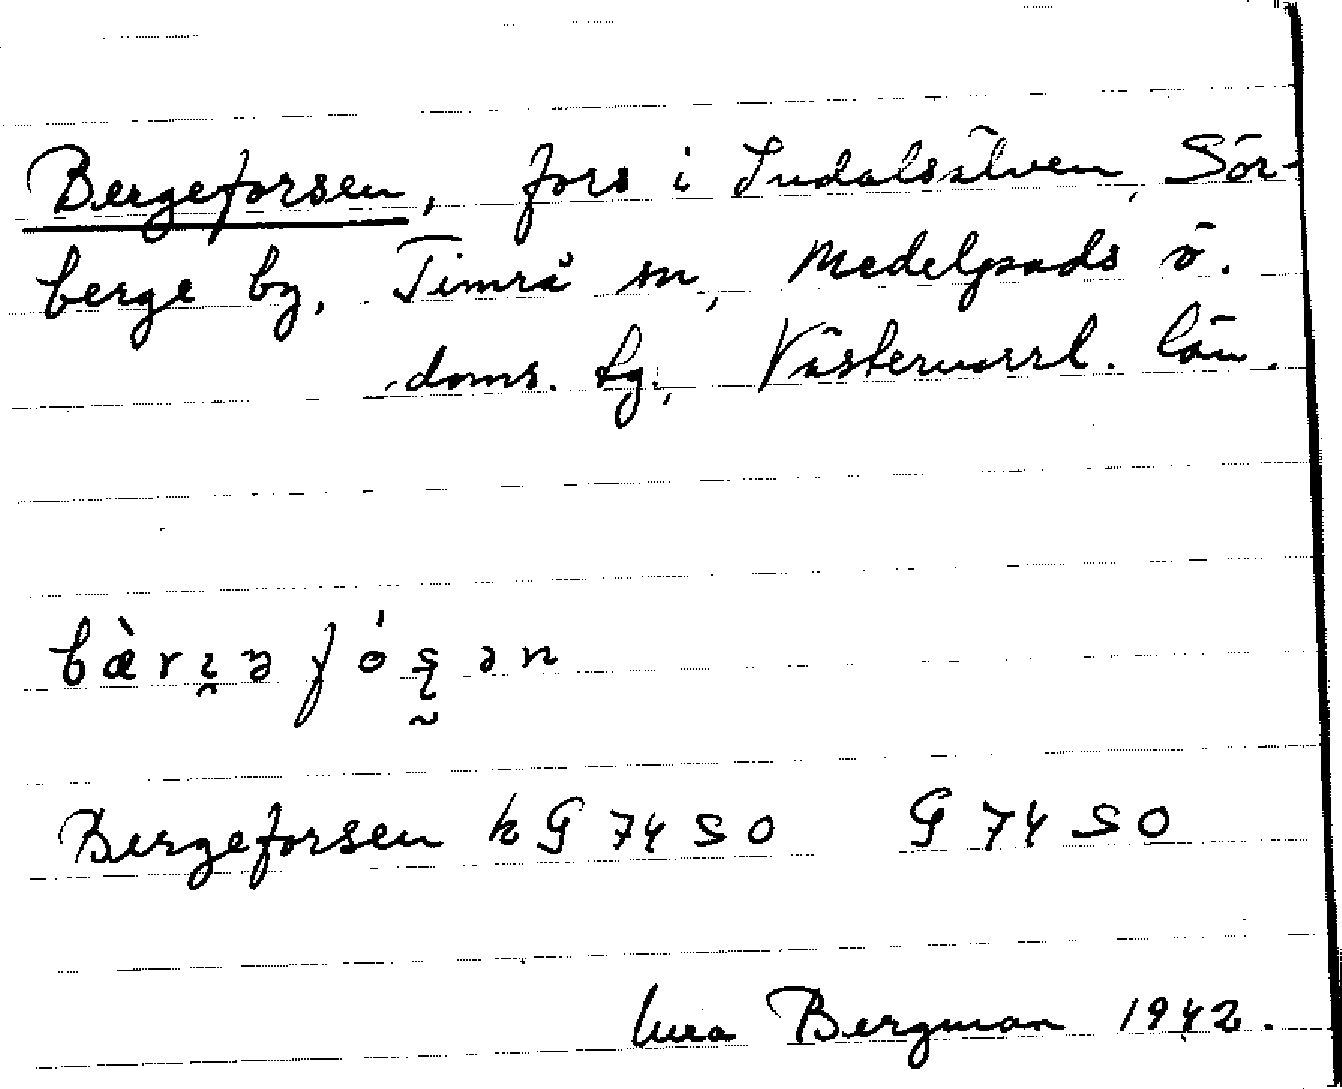 Bergeforsen, fors i Indalsälven, Sör-
berge by, Timrå sn, Medelpads ö.
doms. tg., Västernorrl. län.
Bergeforsen k G 74 SO G 74 SO
Bergman 1942.